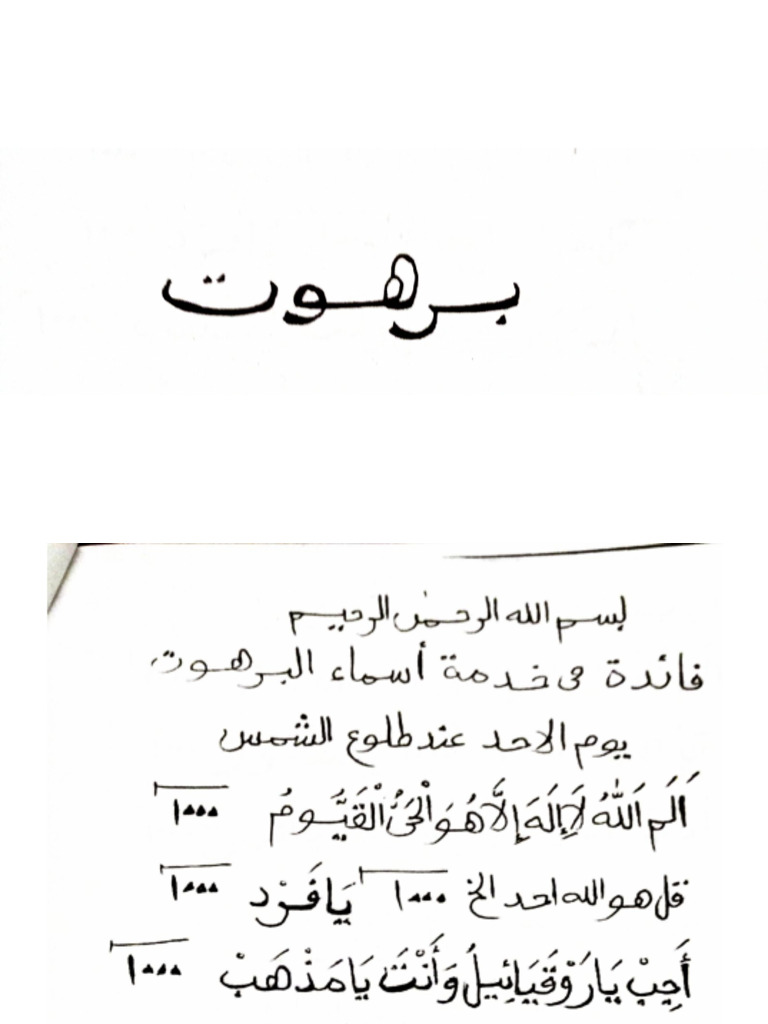 برهوت
بسم الله الرحمن الرحيم
فائدة في خدمة أسماء البرهوت
يوم الاحد عند طلوع الشمس
اَلَم اَللّٰهُ لَاإِلَهَ إِلَّا هُوَ الْحَىُّ الْقَيُّومُ ١٠٠٠
قل هو الله احد الخ ١٠٠٠ يَا فَرْد ١٠٠٠
أَجِبْ يَا رَوْقَيَائِيلُ وَأَنْتَ يَا مَذْهَبْ ١٠٠٠